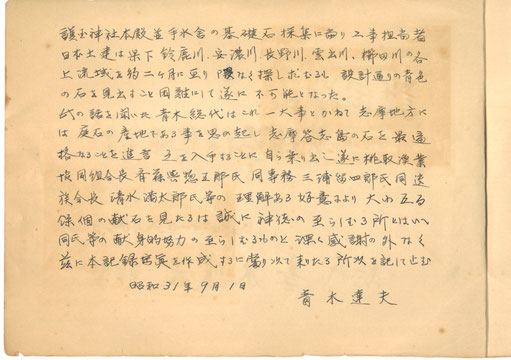 護玉神社本殿並手水舎の基礎石採集に当り工事担当者
日本土建は県下鈴鹿川、安濃川、長野川、雲出川、櫛田川の各
上流域を約二ヶ月に亘り隈なく探し求むるも設計通りの青色
の石を見出すこと困難にて遂に不可能となった。
此の話を聞いた青木総代はこれ一大事とかねて志摩地方に
は庭石の産地である事を思い起し志摩答志島の石を最適
格なことを進言之を入手することに自ら乗り出し遂に桃取漁業
協同組合長斉藤 五郎氏同専務三浦留四郎氏同遺
族会長清水満太郎氏等の理解ある好意により大小五百
余個の献石を見たるは誠に神徳の至らしむる所とはいへ
同氏等の献身的協力の至らしむるものと深く感謝の外なく
茲に本記録写真を作成するに当り次て来たる所以を記して止む
昭和31年9月1日
青木達夫